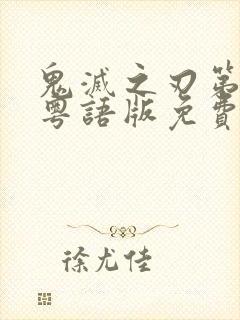 鬼滅之刃第
粵語版免費
徐尤佳